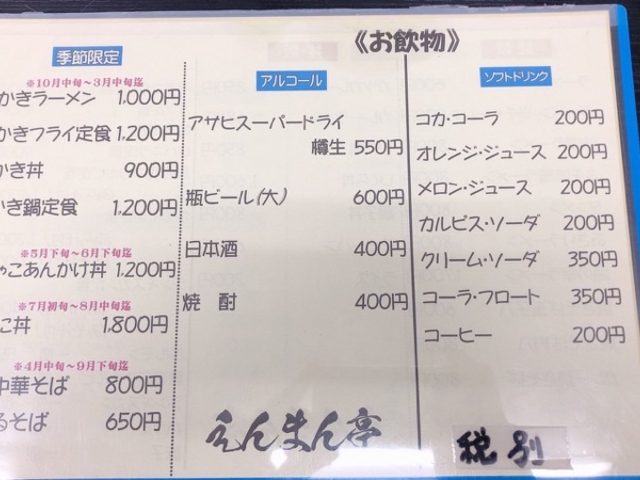 《お飲物》
季節限定
※10月中旬～3月中旬迄
かきラーメン 1,000円
かきフライ定食 1,200円
かき丼 900円
かき鍋定食 1,200円
※5月下旬～6月下旬迄
ゃこあんかけ丼 1,200円
※7月初旬～8月中旬迄
に丼 1,800円
※4月中旬～9月下旬迄
中華そば 800円
るそば 650円
アルコール
アサヒスーパードライ
樽生 550円
瓶ビール(大) 600円
日本酒 400円
焼 酎 400円
えんまん亭
ソフトドリンク
コカ・コーラ 200円
オレンジ・ジュース 200円
メロン・ジュース 200円
カルピス・ソーダ 200円
クリーム・ソーダ 350円
コーラ・フロート 350円
コーヒー 200円
税別